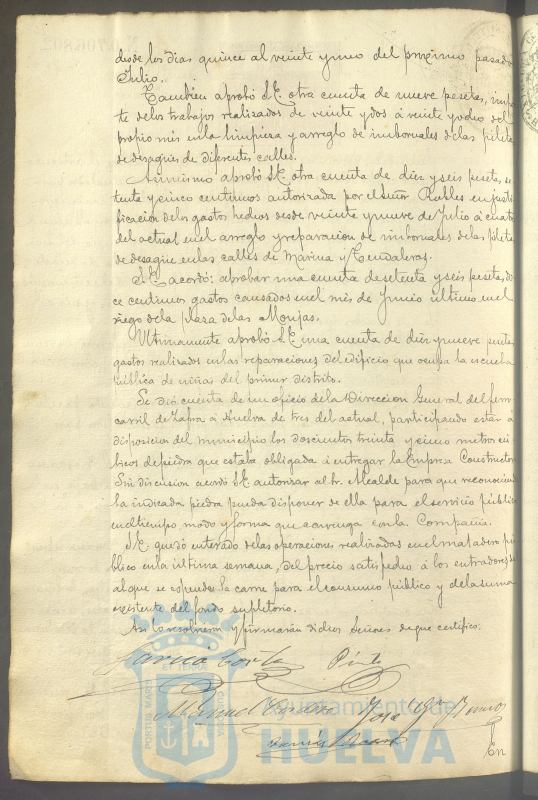 desde los dias quince al veinte y uno del proximo pasado
Julio.
Tambien aprobó S.E. otra cuenta de nueve pesetas, impor
te de los trabajos realizados de veinte y dos á veinte y ocho del
propio mes en la limpieza y arreglo de imbornales de las piletas
de desagües de diferentes calles.
Asimismo aprobó S.E. otra cuenta de diez y seis pesetas, se
tenta y cinco centimos autorizada por el Señor Robles en justi
ficacion de los gastos hechos desde veinte y nueve de Julio á cuatro
del actual en el arreglo y reparacion de imbornales de las piletas
de desagüe en las calles de Marina y Tendaleras.
S.E. acordó: aprobar una cuenta de setenta y seis pesetas, do
ce centimos gastos causados en el mes de Junio último en el
riego de la plaza de las Monjas.
Ultimamente aprobó S.E. una cuenta de diez y nueve pesetas
gastos realizados en las reparaciones del edificio que ocupa la escuela
pública de niñas del primer distrito.
Se dió cuenta de un oficio de la Direccion General del ferro
carril de Zafra á Huelva de tres del actual, participando estar á
disposicion del municipio los doscientos treinta y cinco metros cú
bicos de piedra que estaba obligada á entregar la Empresa Constructora
Sin discusion acordó S.E. autorizar al Sr. Alcalde para que reconocida
la indicada piedra pueda disponer de ella para el servicio público
en el tiempo modo y forma que convenga con la Compañia.
S.E. quedó enterado de las operaciones realizadas en el matadero pú
blico en la última semana, del precio satisfecho á los entradores
al que se espende la carne para el consumo público y de la suma
existente del fondo supletorio.
Asi lo resolvieron y firmarán dichos Señores de que certifico.
Garcia Cortes Pinto
Manuel José
En
PORTUS MARIS
ET TERRAE
Ayuntamiento de
HUELVA